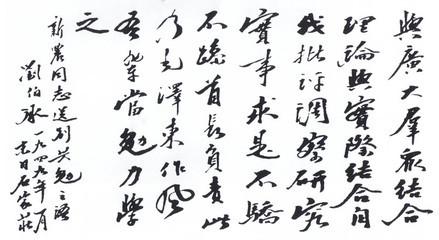 與廣大羣衆結合
理論與實際結合自
我批評調察研究
實事求是不驕
不躁首長負責此
乃毛澤東作風
吾輩當勉力學
之
新農同志送别共勉之語
劉伯承一九四九年一月
日石家莊